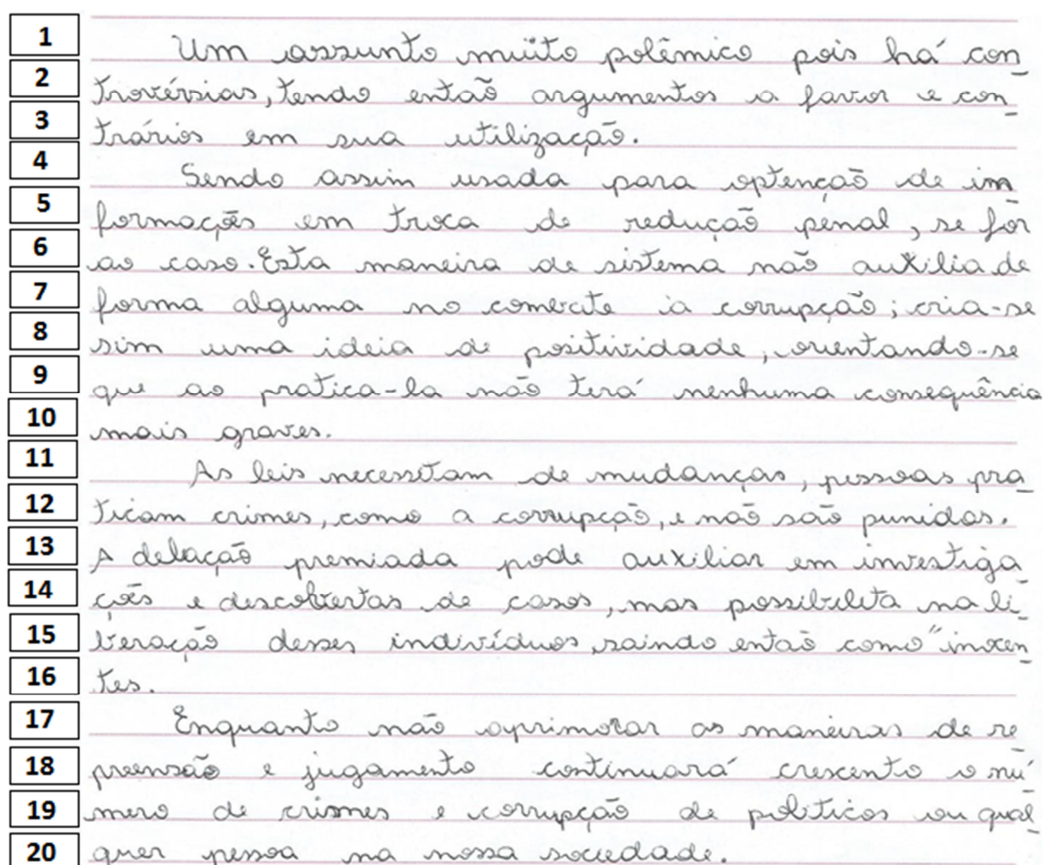 1 Um assunto muito polêmico pois há con
2 trovérsias, tendo então argumentos a favor e con
3 trários em sua utilização.
4 Sendo assim usada para optenção de im
5 formações em troca de redução penal, se for
6 ao caso. Esta maneira de sistema não auxilia de
7 forma alguma no combate à corrupção; cria-se
8 sim uma ideia de positividade, orientando-se
9 que ao pratica-la não terá nenhuma consequência
10 mais graves.
11 As leis necessitam de mudanças, pessoas pra
12 ticam crimes, como a corrupção, e não são punidas.
13 A delação premiada pode auxiliar em investiga
14 ções e descobertas de casos, mas possibilita na li
15 beração desses indivíduos, saindo então como "inocen
16 tes.
17 Enquanto não aprimorar as maneiras de re
18 preensão e jugamento continuará crescento o nú
19 mero de crimes e corrupção de politicos ou qual
20 quer pessoa na nossa sociedade.